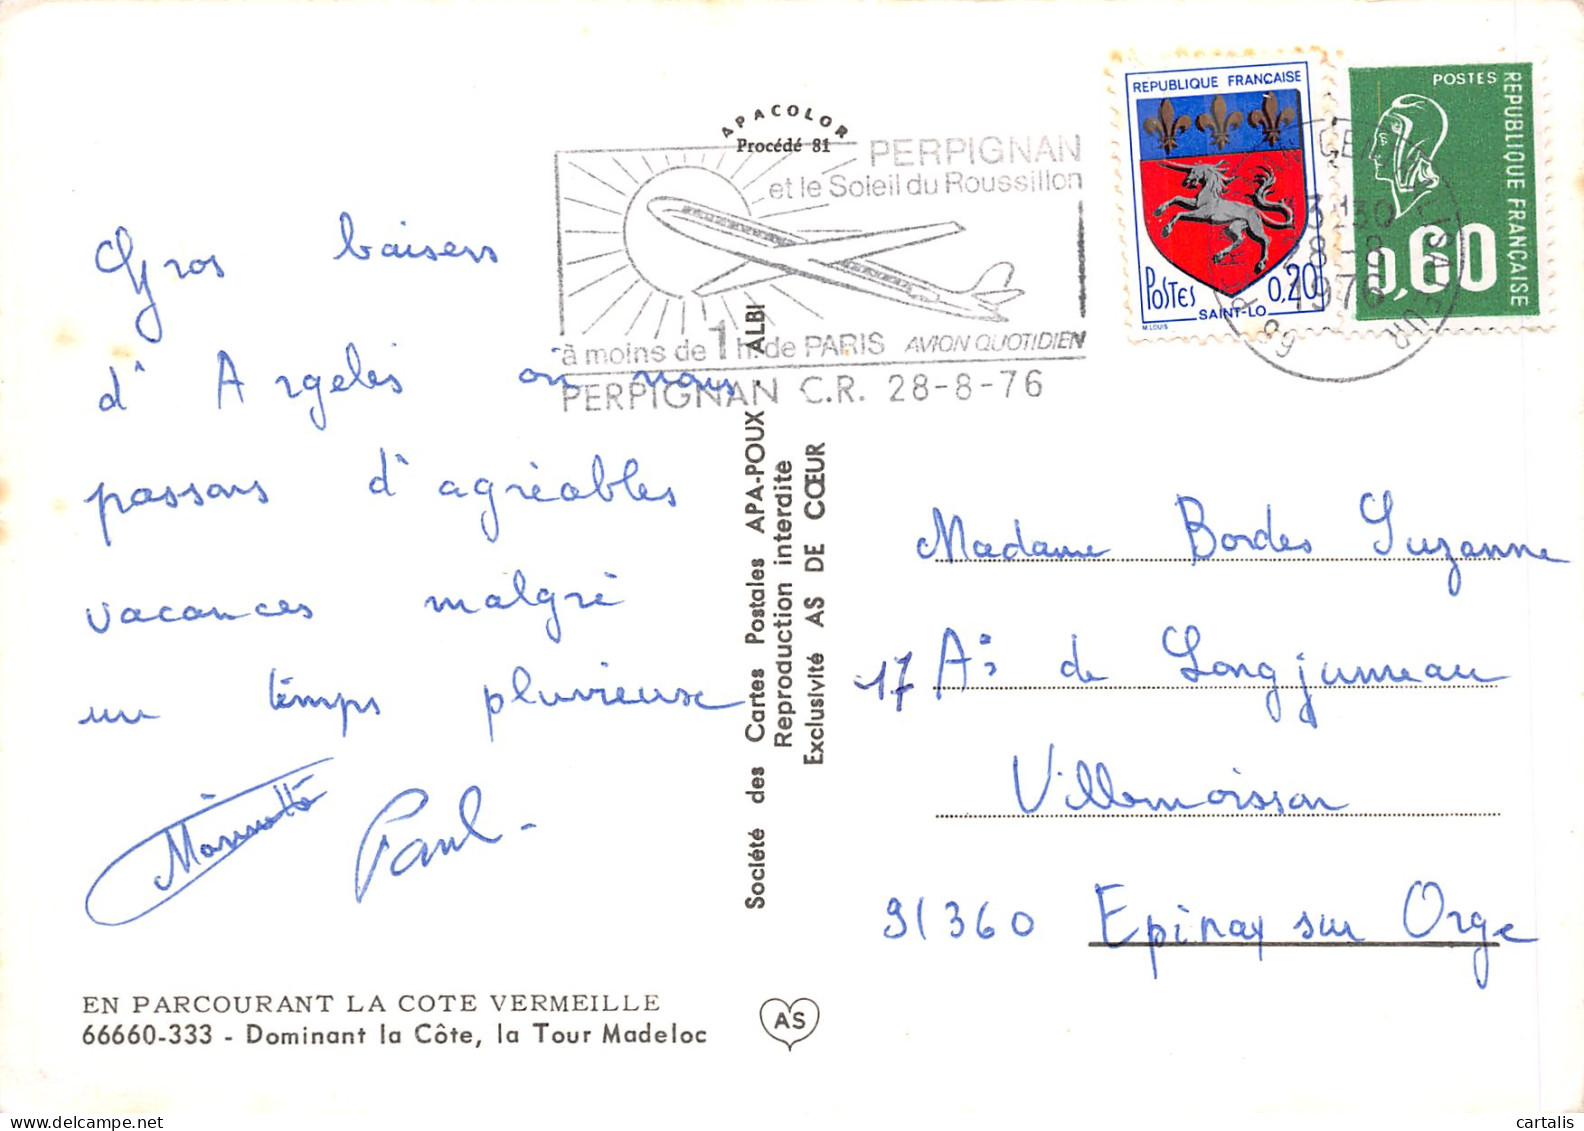 APACOLOR
Procédé 81
PERPIGNAN
et le Soleil du Roussillon
à moins de 1h de PARIS AVION QUOTIDIEN
PERPIGNAN C.R. 28-8-76
REPUBLIQUE FRANÇAISE
POSTES 0,20
SAINT-LO
M.LOUIS
POSTES
REPUBLIQUE FRANÇAISE
0,60
28-8
1976
Gros baisers
d'Argelès où nous
passons d'agréables
vacances malgré
un temps pluvieux
Paul
Société des Cartes Postales APA-POUX - ALBI
Reproduction interdite
Exclusivité AS DE CŒUR
Madame Bordes Suzanne
17 de Longjumeau
Villemoisson
91360 Epinay sur Orge
EN PARCOURANT LA COTE VERMEILLE
66660-333 - Dominant la Côte, la Tour Madeloc
AS
cartalis